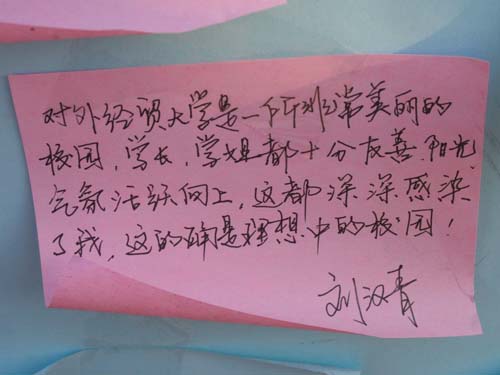 对外经贸大学是一所非常美丽的
校园，学长，学姐都十分友善，阳光
气氛活跃向上，这都深深感染
了我，这的确是理想中的校园！
刘汉青